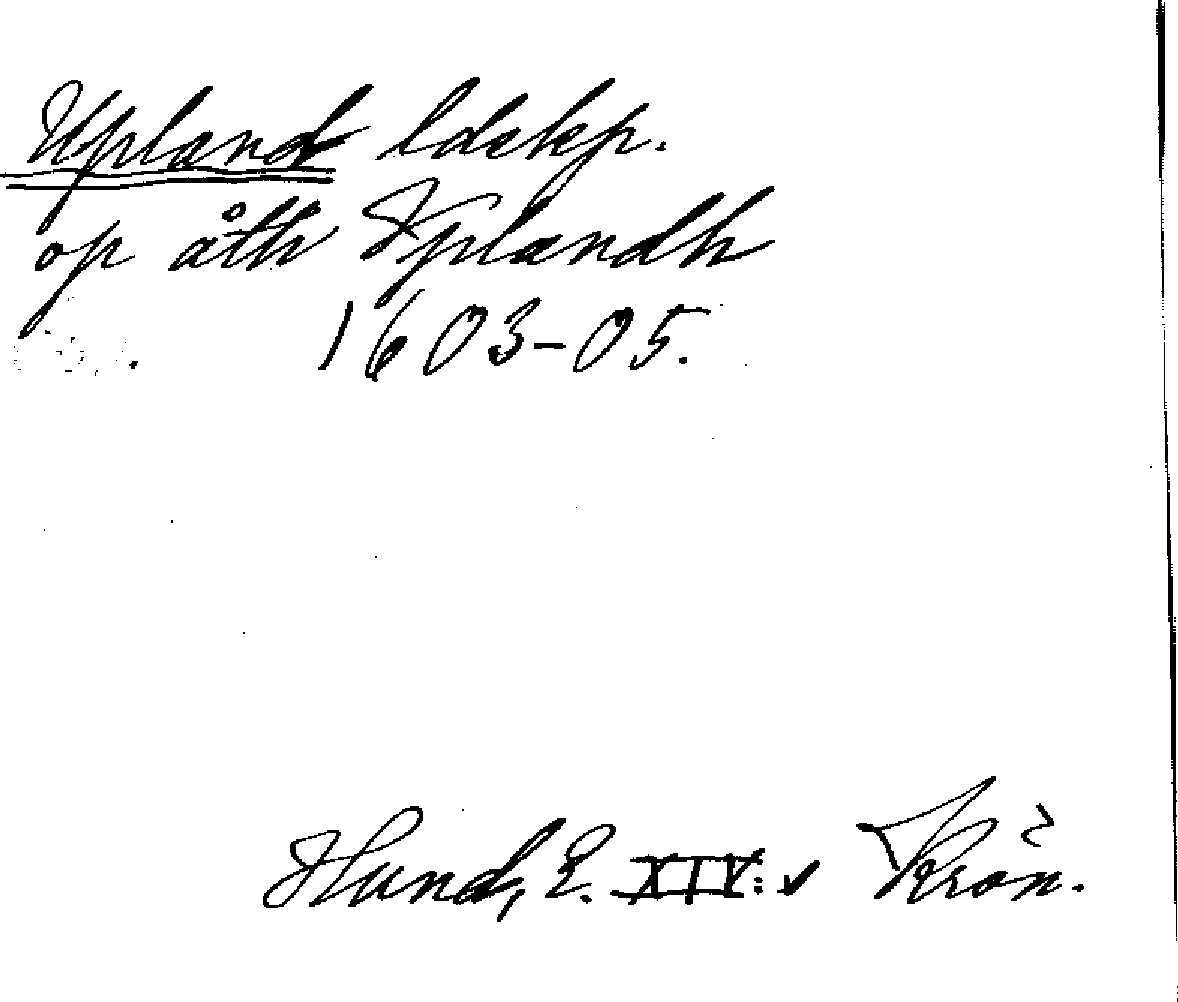 Upland ldskp.
op åth Vplandh
1603-05.
Hund, E. XIV:s Krön.